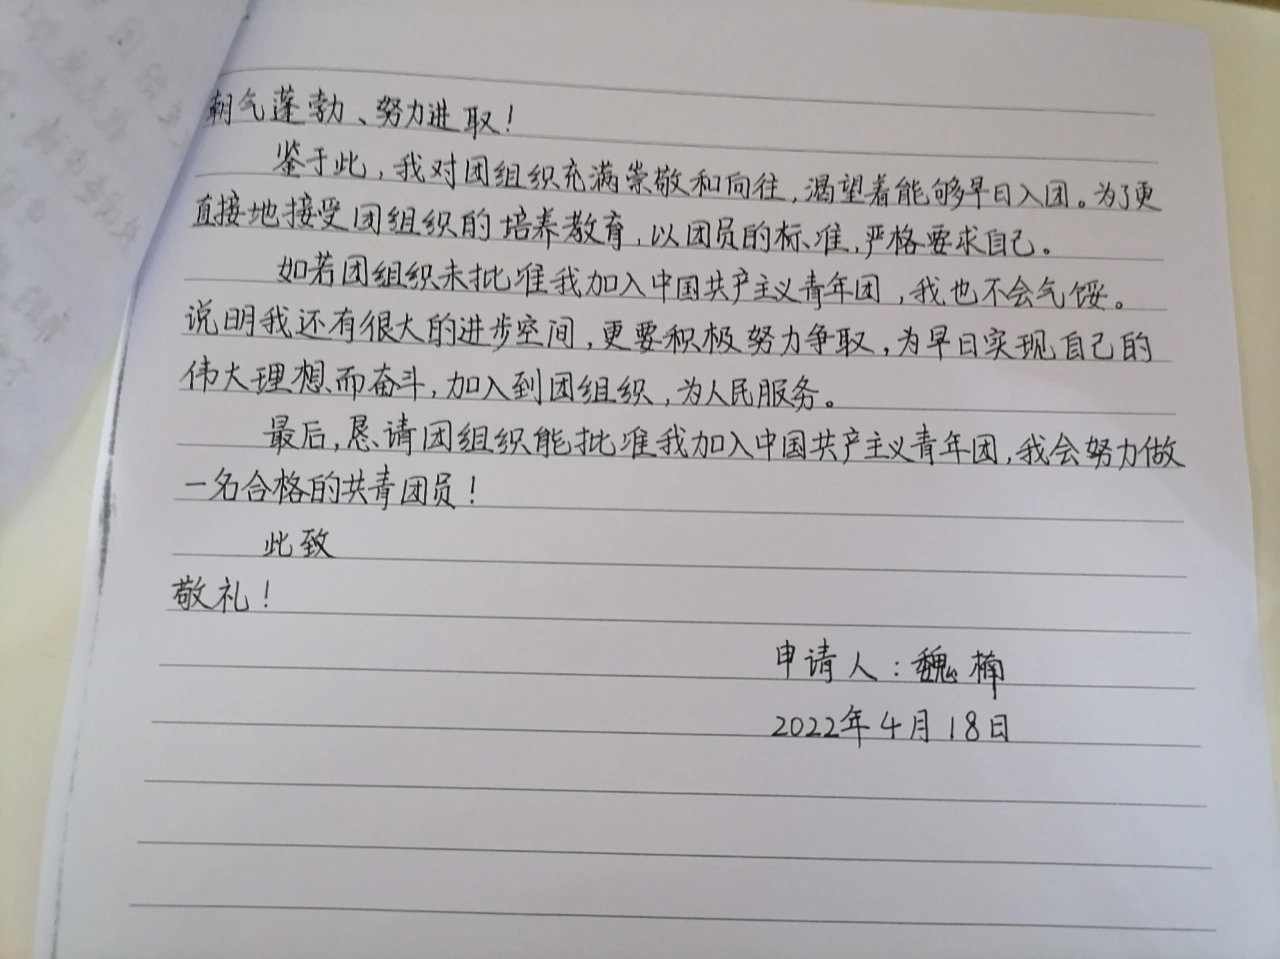 朝气蓬勃、努力进取！
鉴于此，我对团组织充满崇敬和向往，渴望着能够早日入团。为了更
直接地接受团组织的培养教育，以团员的标准，严格要求自己。
如若团组织未批准我加入中国共产主义青年团，我也不会气馁。
说明我还有很大的进步空间，更要积极努力争取，为早日实现自己的
伟大理想而奋斗，加入到团组织，为人民服务。
最后，恳请团组织能批准我加入中国共产主义青年团，我会努力做
一名合格的共青团员！
此致
敬礼！
申请人：魏楠
2022年4月18日